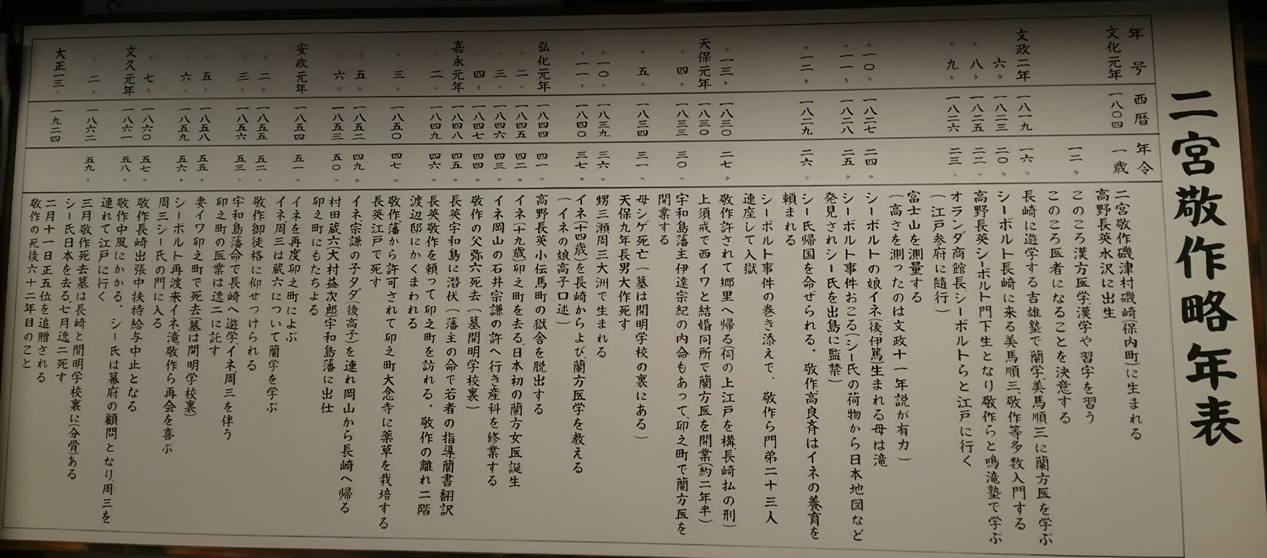 二宮敬作略年表
年号 西暦 年令
文化元年 一八〇四 一歳 二宮敬作磯津村磯崎(保内町)に生まれる
高野長英水沢に出生
一二〃 このころ漢方医学漢学や習字を習う
このころ医者になることを決意する
文政二年 一八一九 一六〃 長崎に遊学する吉雄塾で蘭学美馬順三に蘭方医を学ぶ
〃六〃 一八二三 二〇〃 シーボルト長崎に来る美馬順三、敬作等多数入門する
〃八〃 一八二五 二二〃 高野長英シーボルト門下生となり敬作らと鳴滝塾で学ぶ
〃九〃 一八二六 二三〃 オランダ商館長シーボルトらと江戸に行く
(江戸参府に随行)
富士山を測量する
(高さを測ったのは文政十一年説が有力)
〃一〇〃 一八二七 二四〃 シーボルトの娘イネ後伊篤生まれる母は滝
〃一一〃 一八二八 二五〃 シーボルト事件おこる(シー氏の荷物から日本地図など
発見されシー氏を出島に監禁)
〃一二〃 一八二九 二六〃 シー氏帰国を命ぜられる。敬作高良斉はイネの養育を
頼まれる
シーボルト事件の巻き添えで、敬作ら門弟二十三人
連座して入獄
〃一三〃 一八三〇 二七〃 敬作許されて郷里へ帰る伺の上江戸を構、長崎払の刑)
天保元年 一八三〇 上須戒で西イワと結婚同所で蘭方医を開業(約二年半)
〃四〃 一八三三 三〇〃 宇和島藩主伊達宗紀の内命もあって、卯之町で蘭方医を
開業する
〃五〃 一八三四 三一〃 母シゲ死亡(墓は開明学校の裏にある)
天保九年長男大作死す
〃一〇〃 一八三九 三六〃 甥三瀬周三大洲で生まれる
〃一一〃 一八四〇 三七〃 イネ(十四歳)を長崎からよび蘭方医学を教える
(イネの娘高子口述)
弘化元年 一八四四 四一〃 高野長英小伝馬町の獄舎を脱出する
〃二〃 一八四五 四二〃 イネ(十九歳)卯之町を去る、日本初の蘭方女医誕生
〃三〃 一八四六 四三〃 イネ岡山の石井宗謙の許へ行き産科を修業する
〃四〃 一八四七 四四〃 敬作の父弥六死去(墓開明学校裏)
嘉永元年 一八四八 四五〃 長英宇和島に潜伏(藩主の命で若者の指導蘭書翻訳
〃二〃 一八四九 四六〃 長英敬作を頼って卯之町を訪れる。敬作の離れ二階
渡辺邸にかくまわれる
〃三〃 一八五〇 四七〃 敬作藩から許可されて卯之町大念寺に薬草を栽培する
長英江戸で死す
〃五〃 一八五二 四九〃 イネ宗謙の子タダ(後高子)を連れ岡山から長崎へ帰る
〃六〃 一八五三 五〇〃 村田蔵六(大村益次郎)宇和島藩に出仕
卯之町にもたちよる
安政元年 一八五四 五一〃 イネを再度卯之町によぶ
イネ周三は蔵六について蘭学を学ぶ
〃二〃 一八五五 五二〃 敬作御徒格に仰せつけられる
〃三〃 一八五六 五三〃 宇和島藩命で長崎へ遊学イネ周三を伴う
卯之町の医業は逸二に託す
〃五〃 一八五八 五五〃 妻イワ卯之町で死去(墓は開明学校裏)
〃六〃 一八五九 五六〃 シーボルト再渡来イネ滝敬作ら再会を喜ぶ
周三シー氏の門に入る
〃七〃 一八六〇 五七〃 敬作長崎出張中扶持給与中止となる
文久元年 一八六一 五八〃 敬作中風にかかる。シー氏は幕府の顧問となり周三を
連れて江戸に行く
〃二〃 一八六二 五九〃 三月敬作死去墓は長崎と開明学校裏に分骨ある
シー氏日本を去る、七月逸二死す
大正一三〃 一九二四 二月十一日正五位を追贈される
敬作の死後六十二年目のこと